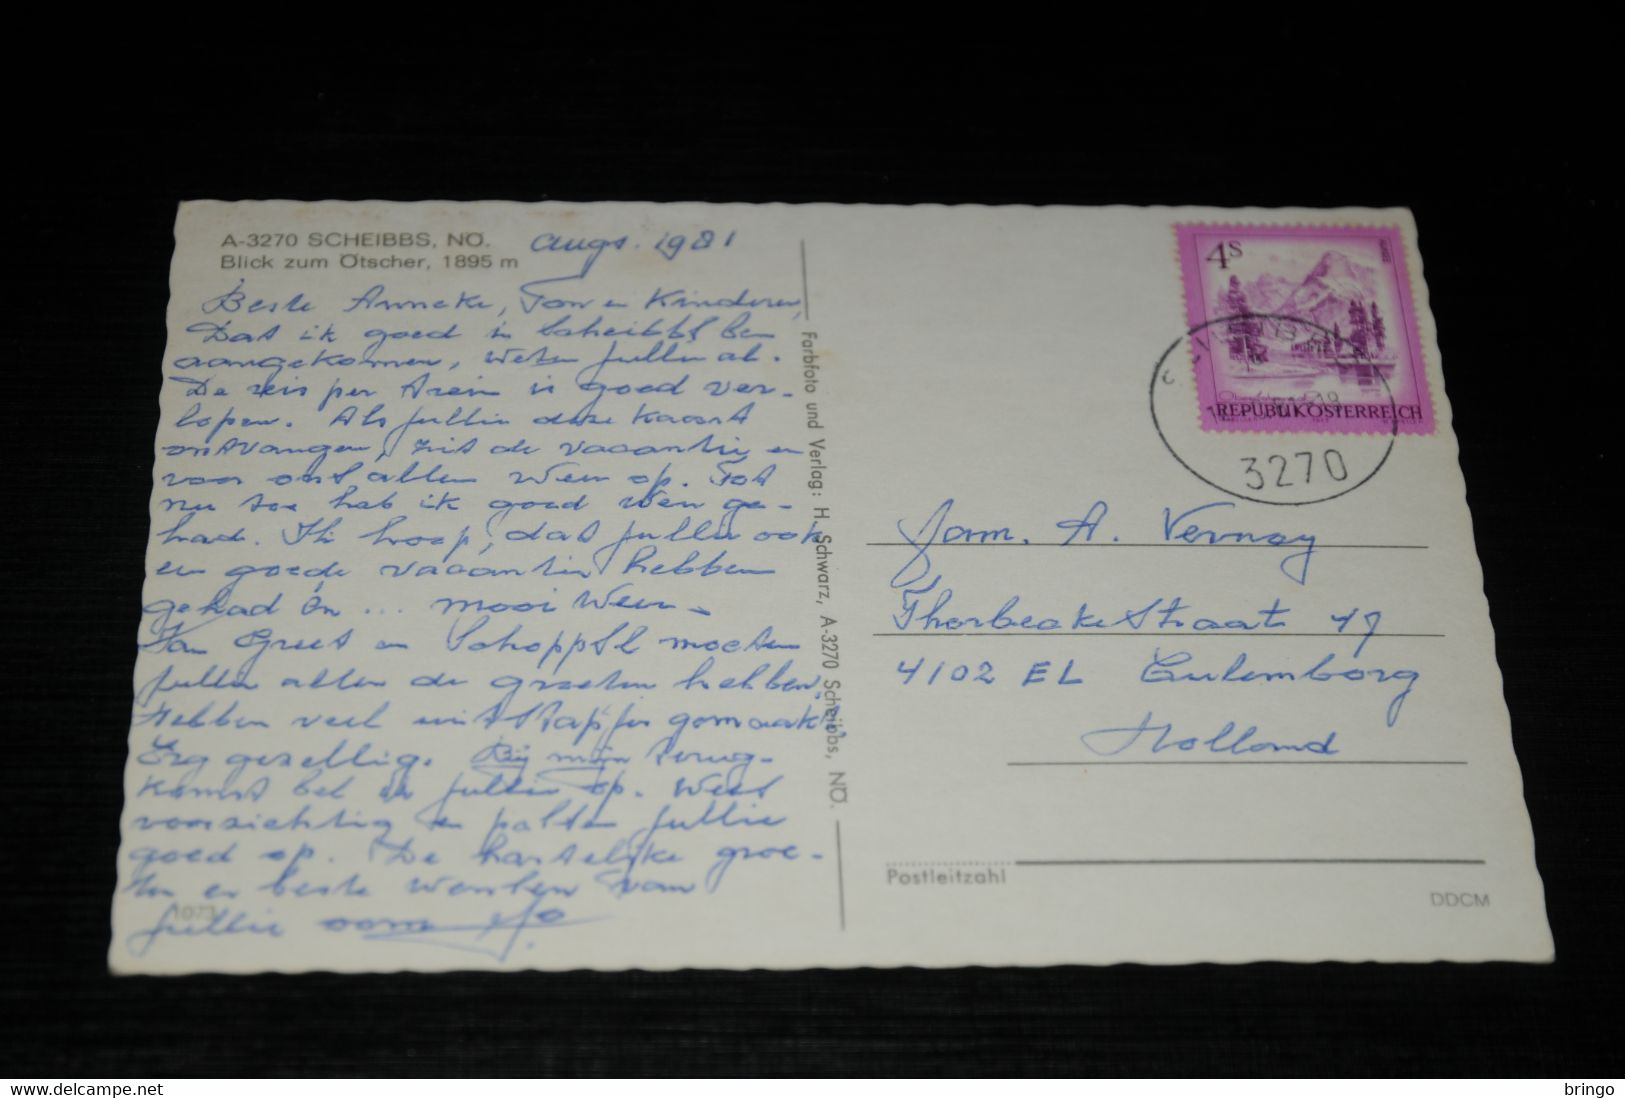 A-3270 SCHEIBBS, NÖ.
Blick zum Ötscher, 1895 m
augs. 1981
Beste Anneke, Ton en Kinderen,
Dat ik goed in Scheibbs ben
aangekomen, weten jullie al.
De reis per trein is goed ver-
lopen. Als jullie deze kaart
ontvangen, zit de vacantie en
voor ons allen weer op. Tot
nu toe heb ik goed weer ge-
had. Ik hoop, dat jullie ook
en goede vacantie hebben
gehad én ... mooi weer.
Van Greet en moeten
jullie allen de groeten hebben.
Hebben veel gemaakt.
Erg gezellig. Bij mijn terug-
komst bel ik jullie op. Weest
voorzichtig en passen jullie
goed op. De hartelijke groe-
ten en beste wensen van
jullie oom
1073
Farbfoto und Verlag: H. Schwarz, A-3270 Scheibbs, NÖ.
4S
REPUBLIK ÖSTERREICH
3270
Fam. A. Vernay
Thorbecke Straat 47
4102 EL Culemborg
Holland
Postleitzahl
DDCM
© www.delcampe.net
bringo